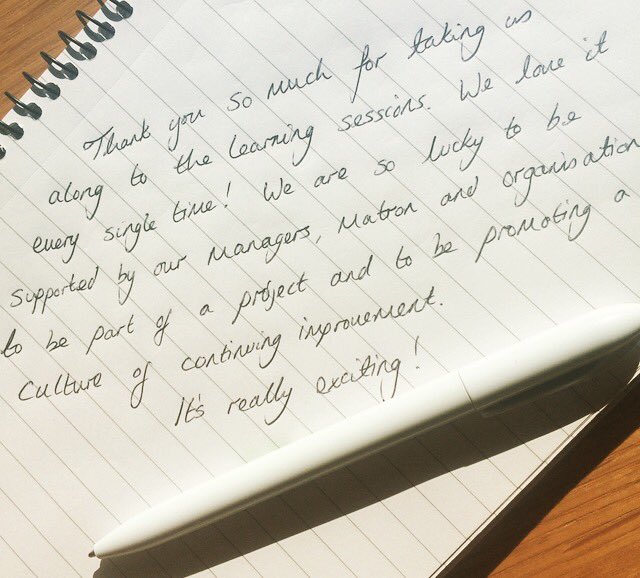 Thank you so much for taking us
along to the learning sessions. We love it
every single time! We are so lucky to be
supported by our Managers, Matron and organisation
to be part of a project and to be promoting a
Culture of continuing improvement.
It's really exciting!